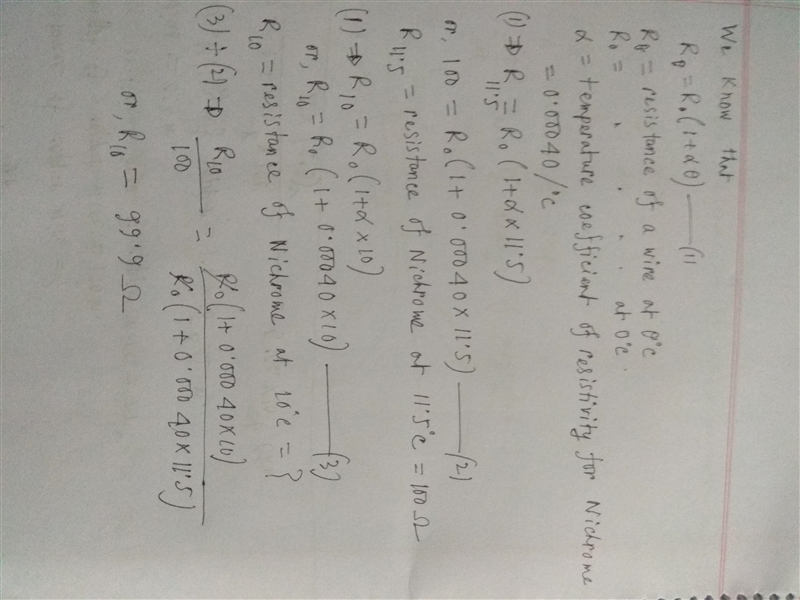 We know that
Rθ = R₀(1+αθ) —— (1)
Rθ = resistance of a wire at θ°c
R₀ = " " " " at 0°c.
α = temperature coefficient of resistivity for Nichrome
= 0.00040/°c
(1) ⇒ R11.5 = R₀(1+α×11.5)
or, 100 = R₀(1+0.00040×11.5) —— (2)
R11.5 = resistance of Nichrome at 11.5°c = 100Ω
(1) ⇒ R10 = R₀(1+α×10)
or, R10 = R₀(1+0.00040×10) —— (3)
R10 = resistance of Nichrome at 10°c = ?
(3) ÷ (2) ⇒ R10/100 = R₀(1+0.00040×10)/R₀(1+0.00040×11.5)
or, R10 = 99.9 Ω